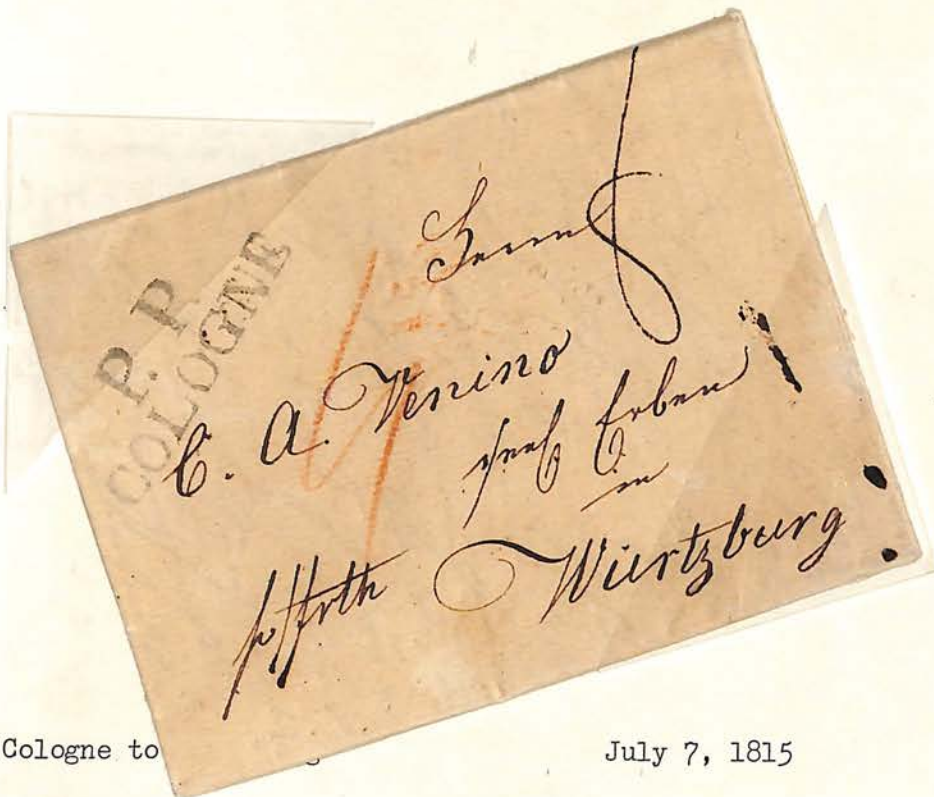 P. P.
COLOGNE
Herrn
C. A. Venino
seel Erben
in
p ffrth Würtzburg
Cologne to
July 7, 1815